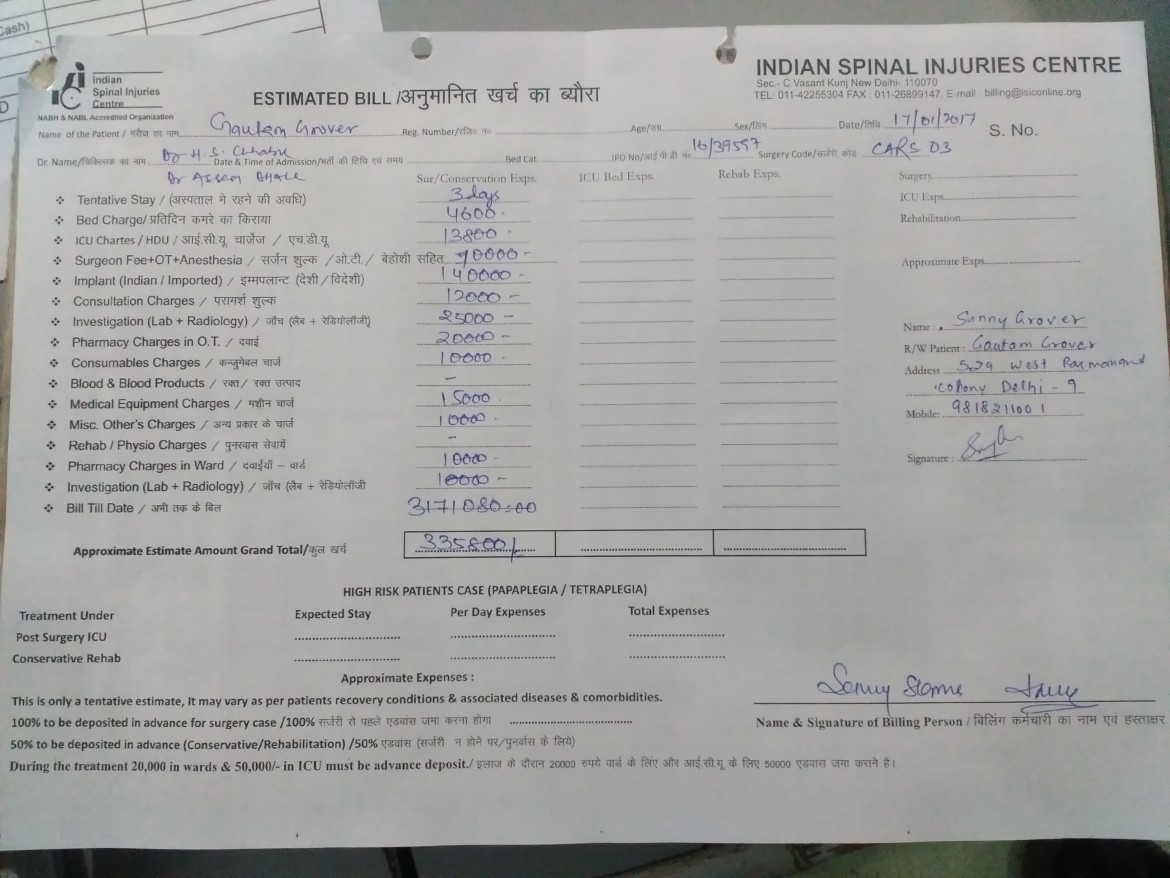 Cash)
D
indian
Spinal Injuries
Centre
NABH & NABL Accredited Organization
ESTIMATED BILL /अनुमानित खर्च का ब्यौरा
INDIAN SPINAL INJURIES CENTRE
Sec.- C Vasant Kunj New Delhi- 110070
TEL: 011-42255304 FAX : 011-26899147, E-mail : billing@isiconline.org
Name of the Patient / मरीज का नाम Gautam Grover Reg. Number/रजि० नं० Age/उम्र Sex/लिंग Date/तिथि 17/01/2017 S. No.
Dr. Name/चिकित्सक का नाम Dr H.S. Chhabra Date & Time of Admission/भर्ती की तिथि एवं समय Bed Cat. IPD No/आई पी डी नं० 16/39557 Surgery Code/सर्जरी कोड CARS 03
Dr Aseem
Sur/Conservation Exps. ICU Bed Exps. Rehab Exps. Surgery
Tentative Stay / (अस्पताल मे रहने की अवधि) 3 days ICU Exps.
Bed Charge/ प्रतिदिन कमरे का किराया 4600 Rehabilitation
ICU Chartes / HDU / आई.सी.यू. चार्जेज / एच.डी.यू 13800
Surgeon Fee+OT+Anesthesia / सर्जन शुल्क /ओ.टी./ बेहोशी सहित 70000 - Approximate Exps.
Implant (Indian / Imported) / इम्मपलान्ट (देशी/विदेशी) 140000 -
Consultation Charges / परामर्श शुल्क 12000 -
Investigation (Lab + Radiology) / जाँच (लैब + रेडियोलॉजी) 25000 -
Pharmacy Charges in O.T. / दवाई 20000 -
Consumables Charges / कन्जुमेबल चार्ज 10000
Blood & Blood Products / रक्त/ रक्त उत्पाद -
Medical Equipment Charges / मशीन चार्ज 15000
Misc. Other's Charges / अन्य प्रकार के चार्ज 10000
Rehab / Physio Charges / पुनरवास सेवायें -
Pharmacy Charges in Ward / दवाईयाँ – वार्ड 10000 -
Investigation (Lab + Radiology) / जाँच (लैब + रेडियोलॉजी 10000 -
Bill Till Date / अभी तक के बिल 3171080=00
Approximate Estimate Amount Grand Total/कुल खर्च 335800/-
Name : Sunny Grover
R/W Patient : Gautam Grover
Address 5229 West
Colony Delhi - 9
Mobile: 9818211001
Signature :
HIGH RISK PATIENTS CASE (PAPAPLEGIA / TETRAPLEGIA)
Treatment Under Expected Stay Per Day Expenses Total Expenses
Post Surgery ICU
Conservative Rehab
Approximate Expenses :
This is only a tentative estimate, It may vary as per patients recovery conditions & associated diseases & comorbidities.
100% to be deposited in advance for surgery case /100% सर्जरी से पहले एडवांस जमा करना होगा
50% to be deposited in advance (Conservative/Rehabilitation) /50% एडवांस (सर्जरी न होने पर/पुनर्वास के लिये)
During the treatment 20,000 in wards & 50,000/- in ICU must be advance deposit./ इलाज के दौरान 20000 रुपये वार्ड के लिए और आई.सी.यू के लिए 50000 एडवास जमा कराने है।
Name & Signature of Billing Person / बिलिंग कर्मचारी का नाम एवं हस्ताक्षर